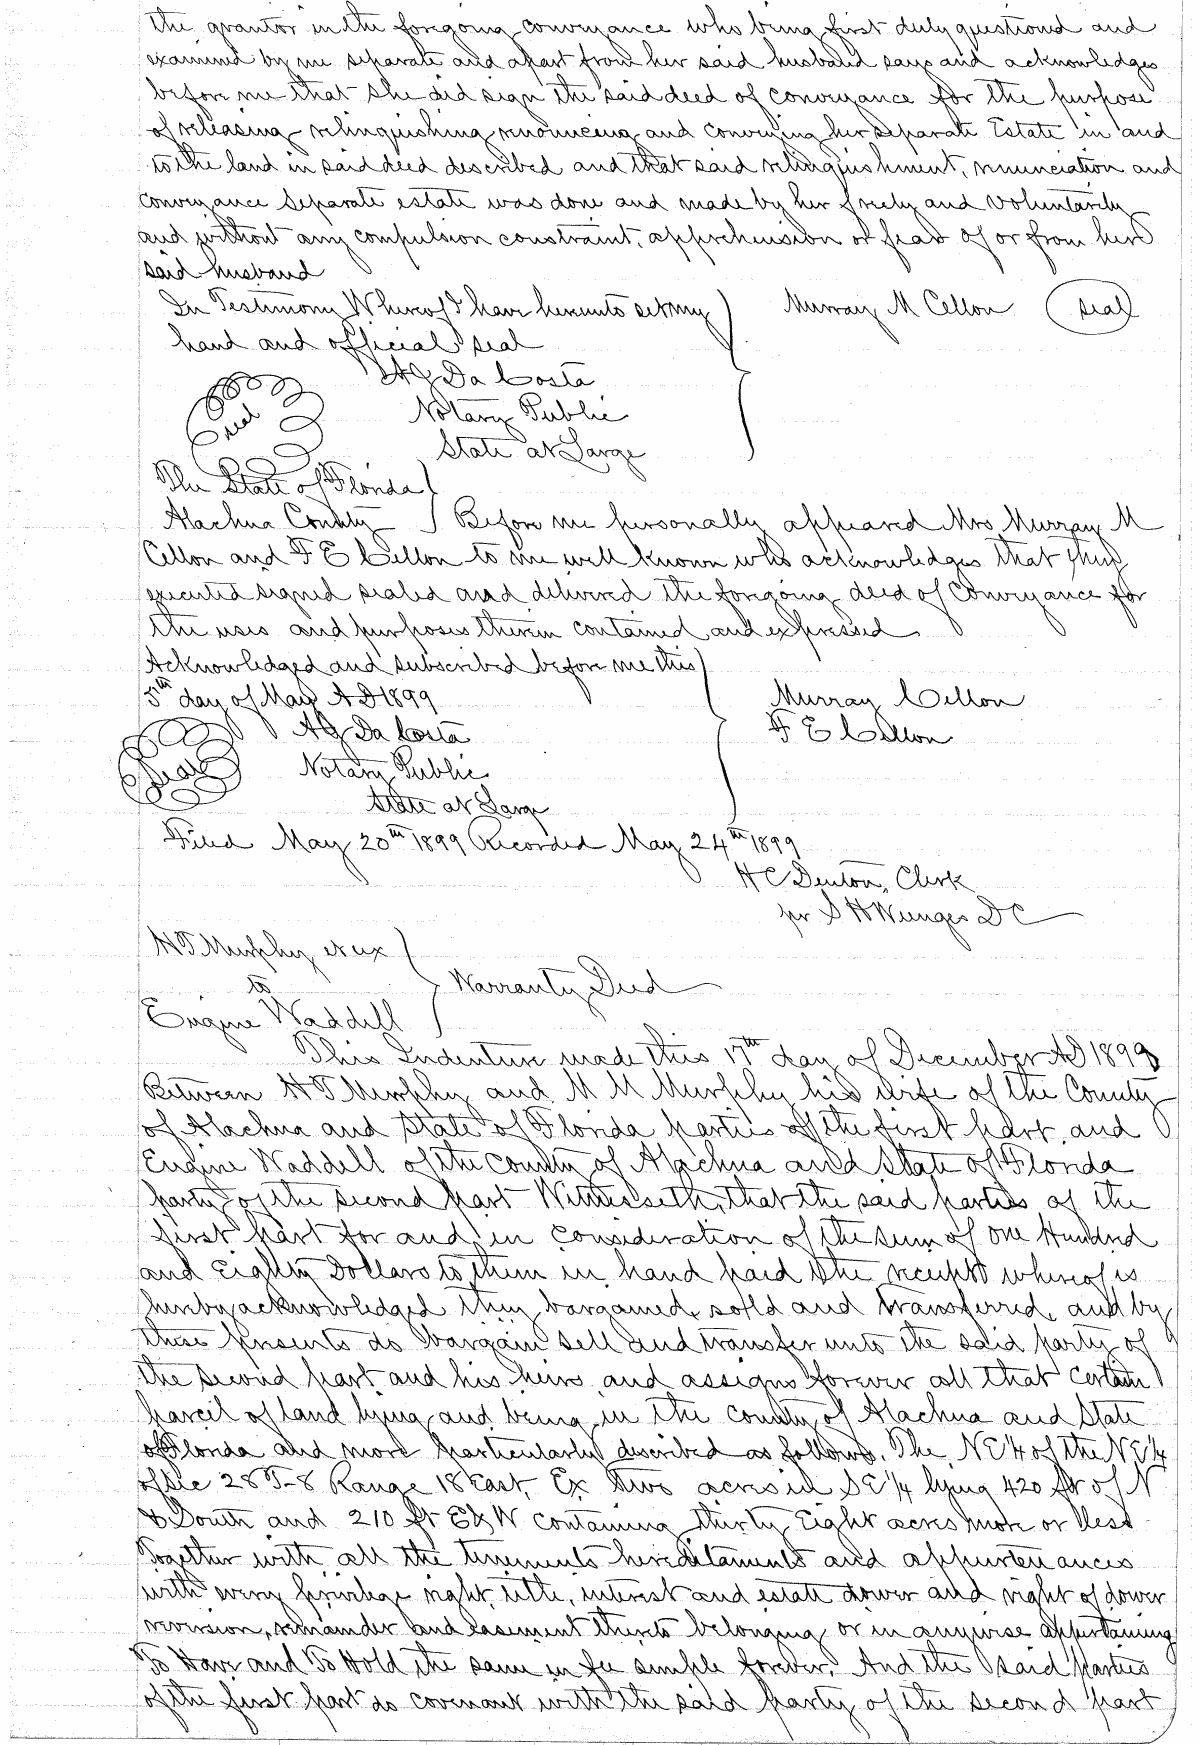 the grantor in the foregoing conveyance who being first duly questioned and
examined by me separate and apart from her said husband says and acknowledges
before me that she did sign the said deed of conveyance for the purpose
of releasing relinquishing renouncing and conveying her separate Estate in and
to the land in said deed described and that said relinquishment, renunciation and
conveyance separate estate was done and made by her freely and voluntarily
and without any compulsion constraint, apprehension or fear of or from her
said husband
In Testimony Whereof I have hereunto set my
hand and official seal
Murray M Cellon seal
A G Da Costa
Notary Public
State at Large
seal
The State of Florida
Alachua County Before me personally appeared Mrs Murray M
Cellon and F E Cellon to me well known who acknowledges that they
executed signed sealed and delivered the foregoing deed of Conveyance for
the uses and purposes therein contained and expressed
Acknowledged and subscribed before me this
5th day of May AD 1899
Murray Cellon
F E Cellon
A G Da Costa
Notary Public
State at Large
Seal
Filed May 20th 1899 Recorded May 24th 1899
H C Denton, Clerk
pr S H Wienges D C
H T Murphy et ux
to
Eugine Waddell
Warranty Deed
This Indenture made this 17th day of December AD 1898
Between H T Murphy and M M Murphy his wife of the County
of Alachua and State of Florida parties of the first part, and
Eugine Waddell of the County of Alachua and State of Florida
party of the second part Witnesseth, that the said parties of the
first part for and in consideration of the sum of one Hundred
and Eighty Dollars to them in hand paid the receipt whereof is
hereby acknowledged they bargained, sold and transferred, and by
these presents do bargain sell and transfer unto the said party of
the second part and his heirs and assigns forever all that certain
parcel of land lying and being in the county of Alachua and State
of Florida and more particularly described as follows. The NE 1/4 of the NE 1/4
of Sec 28 T-8 Range 18 East, Ex two acres in SE 1/4 lying 420 ft of N
& South and 210 ft E & W containing thirty Eight acres more or less
Together with all the tenements hereditaments and appurtenances
with every privilege right, title, interest and estate dower and right of dower
reversion, remainder and easement thereto belonging or in anywise appertaining
To Have and To Hold the same in fee simple forever. And the said parties
of the first part do covenant with the said party of the second part